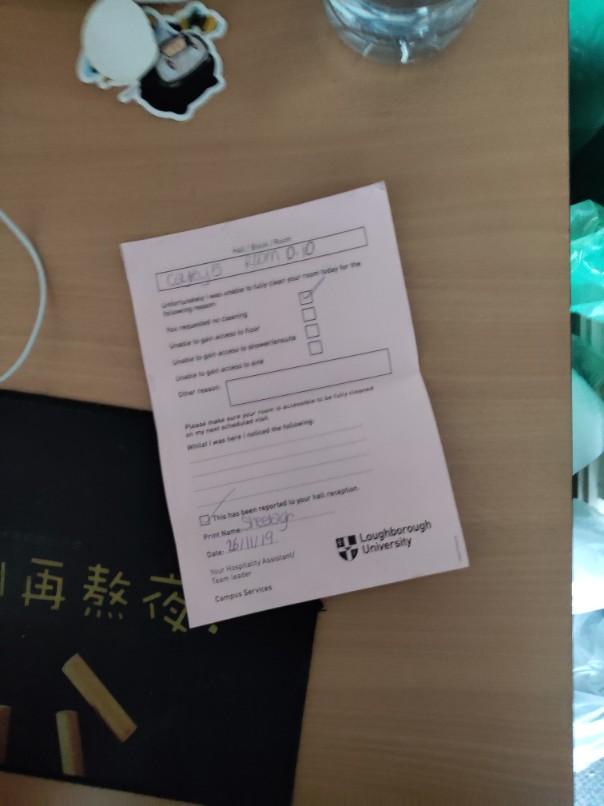 Hall / Block / Room
Room 0.10
Unfortunately I was unable to fully clean your room today for the
following reason:
You requested no cleaning
Unable to gain access to floor
Unable to gain access to shower/ensuite
Unable to gain access to sink
Other reason:
Please make sure your room is accessible to be fully cleaned
on my next scheduled visit.
Whilst I was here I noticed the following:
This has been reported to your hall reception.
Print Name:
Date: 26/11/19
Your Hospitality Assistant/
Team leader
Campus Services
Loughborough
University
再熬夜